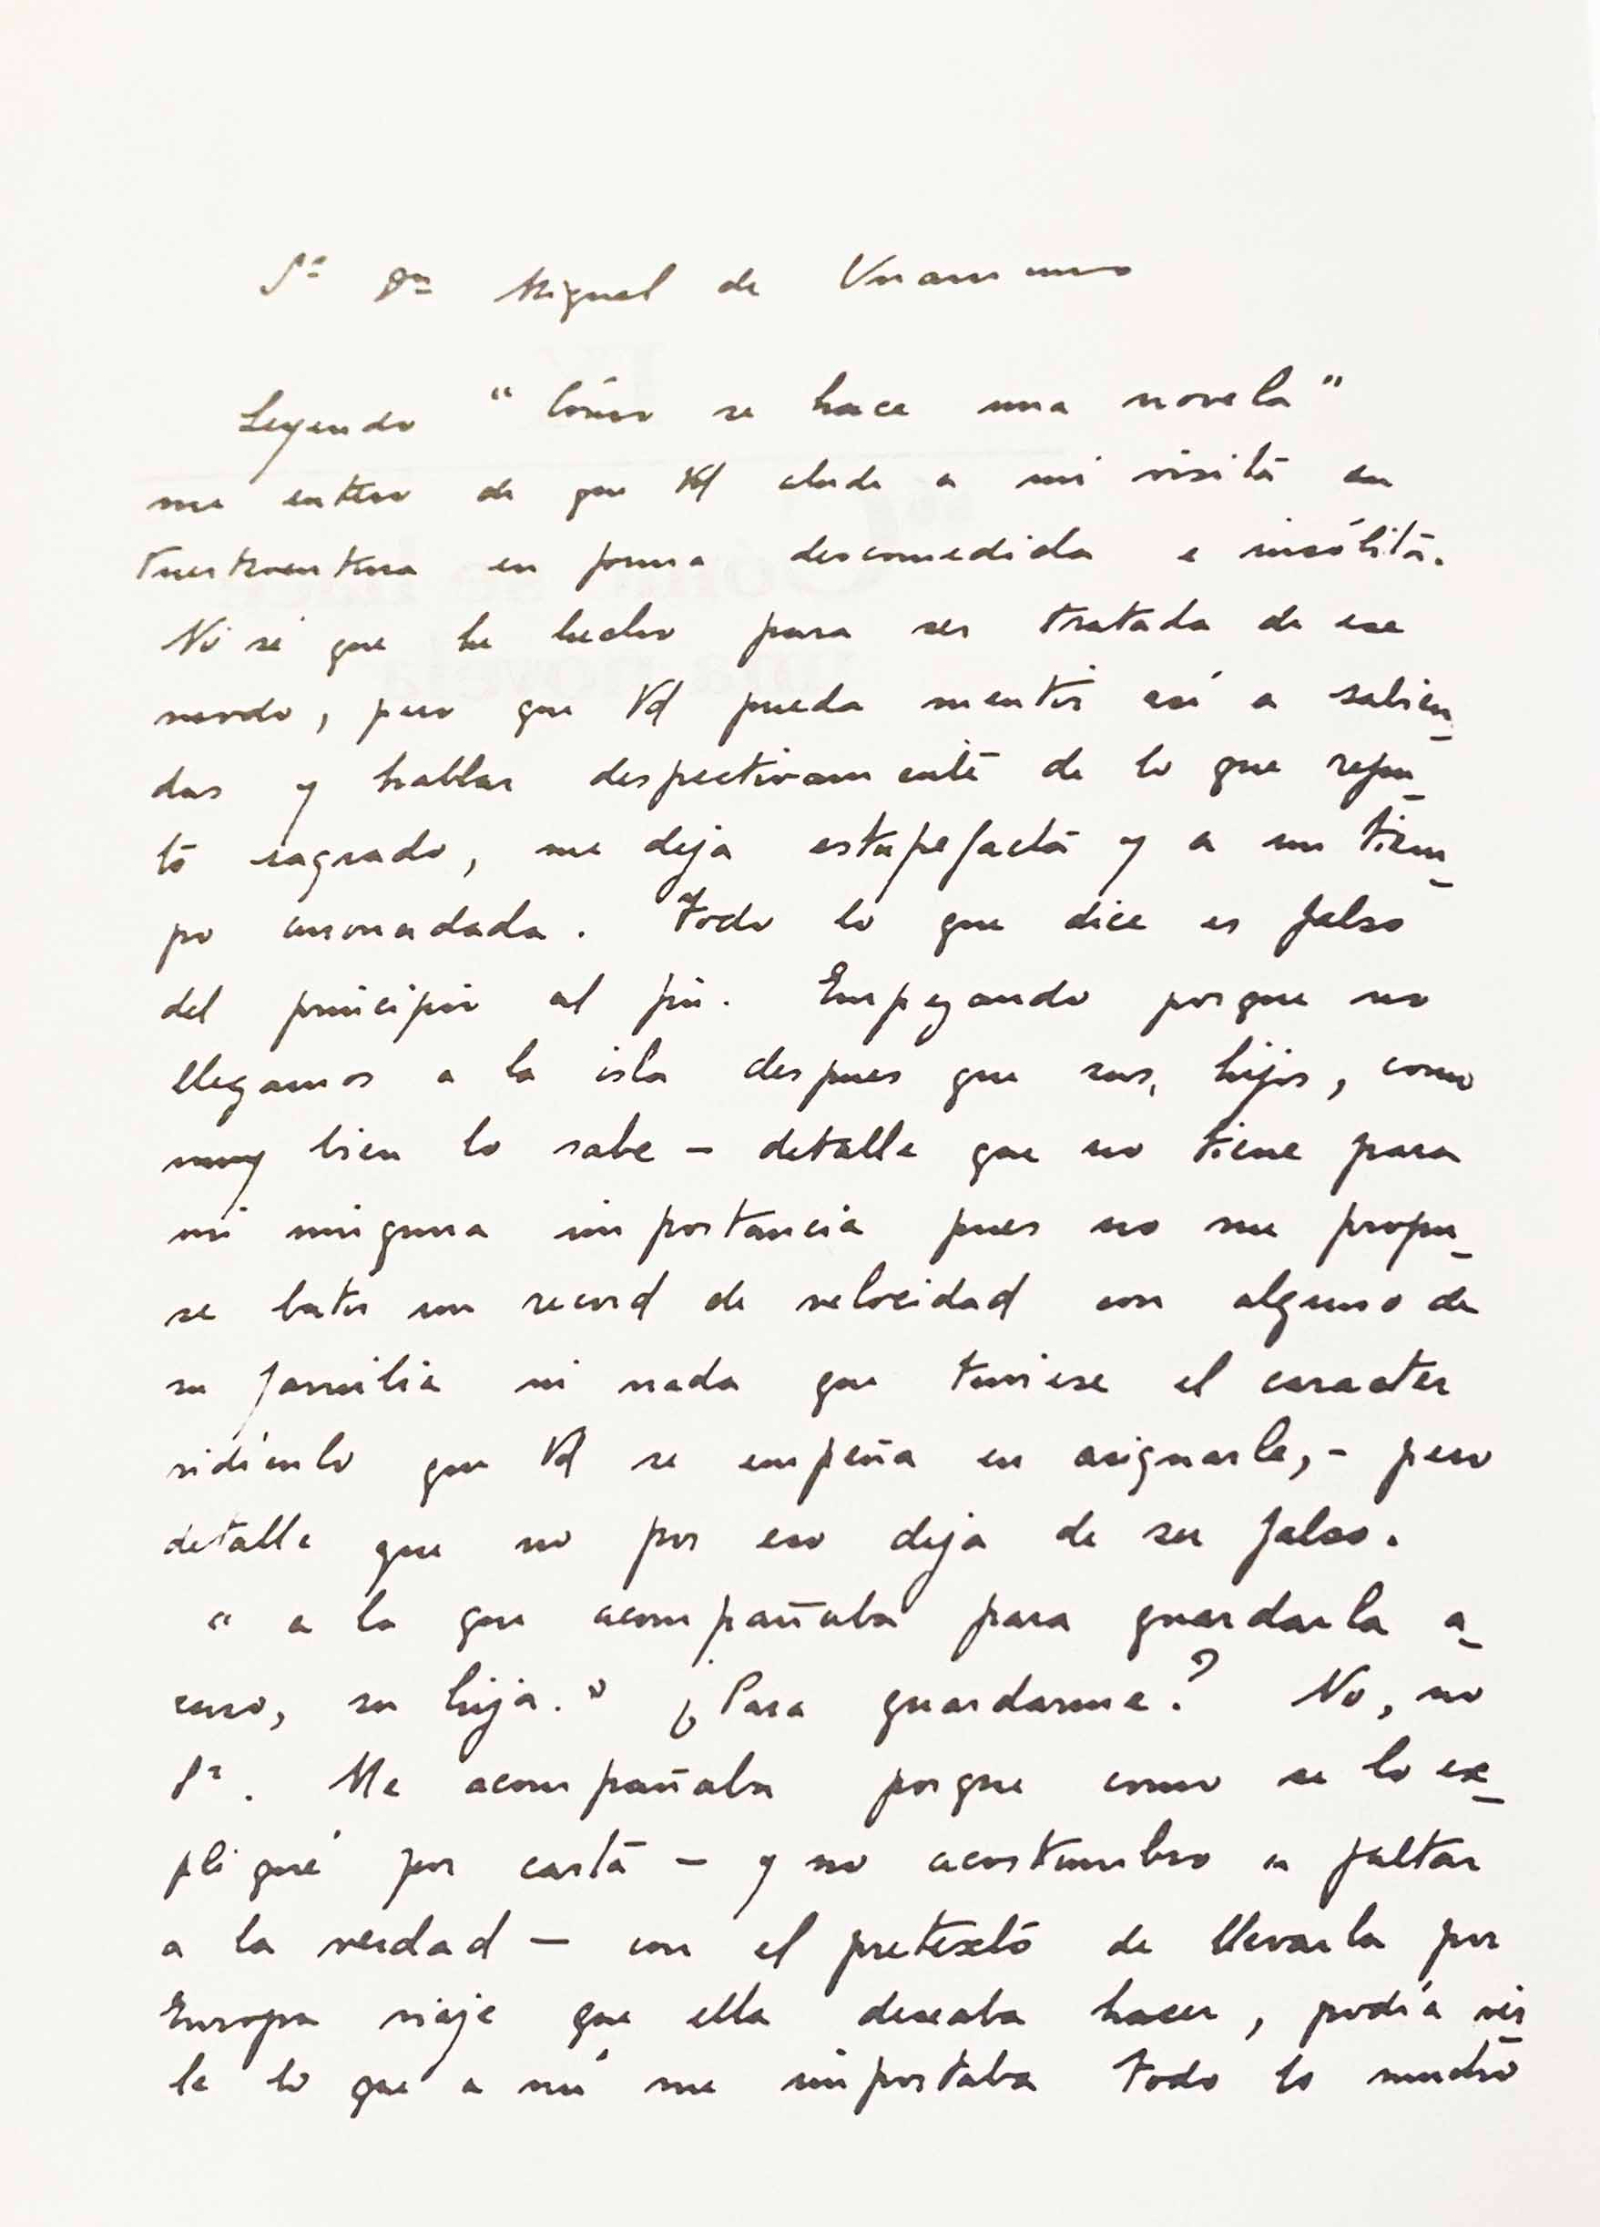 Sr Dn Miguel de Unamuno
Leyendo "Cómo se hace una novela"
me entero de que Vd alude a mi visita en
Fuerteventura en forma descomedida e insólita.
No sé que he hecho para ser tratada de ese
modo, pero que Vd pueda mentir así a sabien_
das y hablar despectivamente de lo que repu_
to sagrado, me deja estupefacta y a un tiem_
po anonadada. Todo lo que dice es falso
del principio al fin. Empezando porque no
llegamos a la isla despues que sus hijos, como
muy bien lo sabe — detalle que no tiene para
mi ninguna importancia pues no me propu_
se batir un record de velocidad con alguno de
su familia ni nada que tuviese el caracter
ridículo que Vd se empeña en asignarle, — pero
detalle que no por eso deja de ser falso.
"a la que acompañaba para guardarla a_
caso, su hija." ¿Para guardarme? No, no
Sr. Me acompañaba porque como se lo ex_
pliqué por carta — y no acostumbro a faltar
a la verdad — con el pretexto de llevarla por
Europa viaje que ella deseaba hacer, podía ver_
le lo que a mí me importaba todo lo mucho